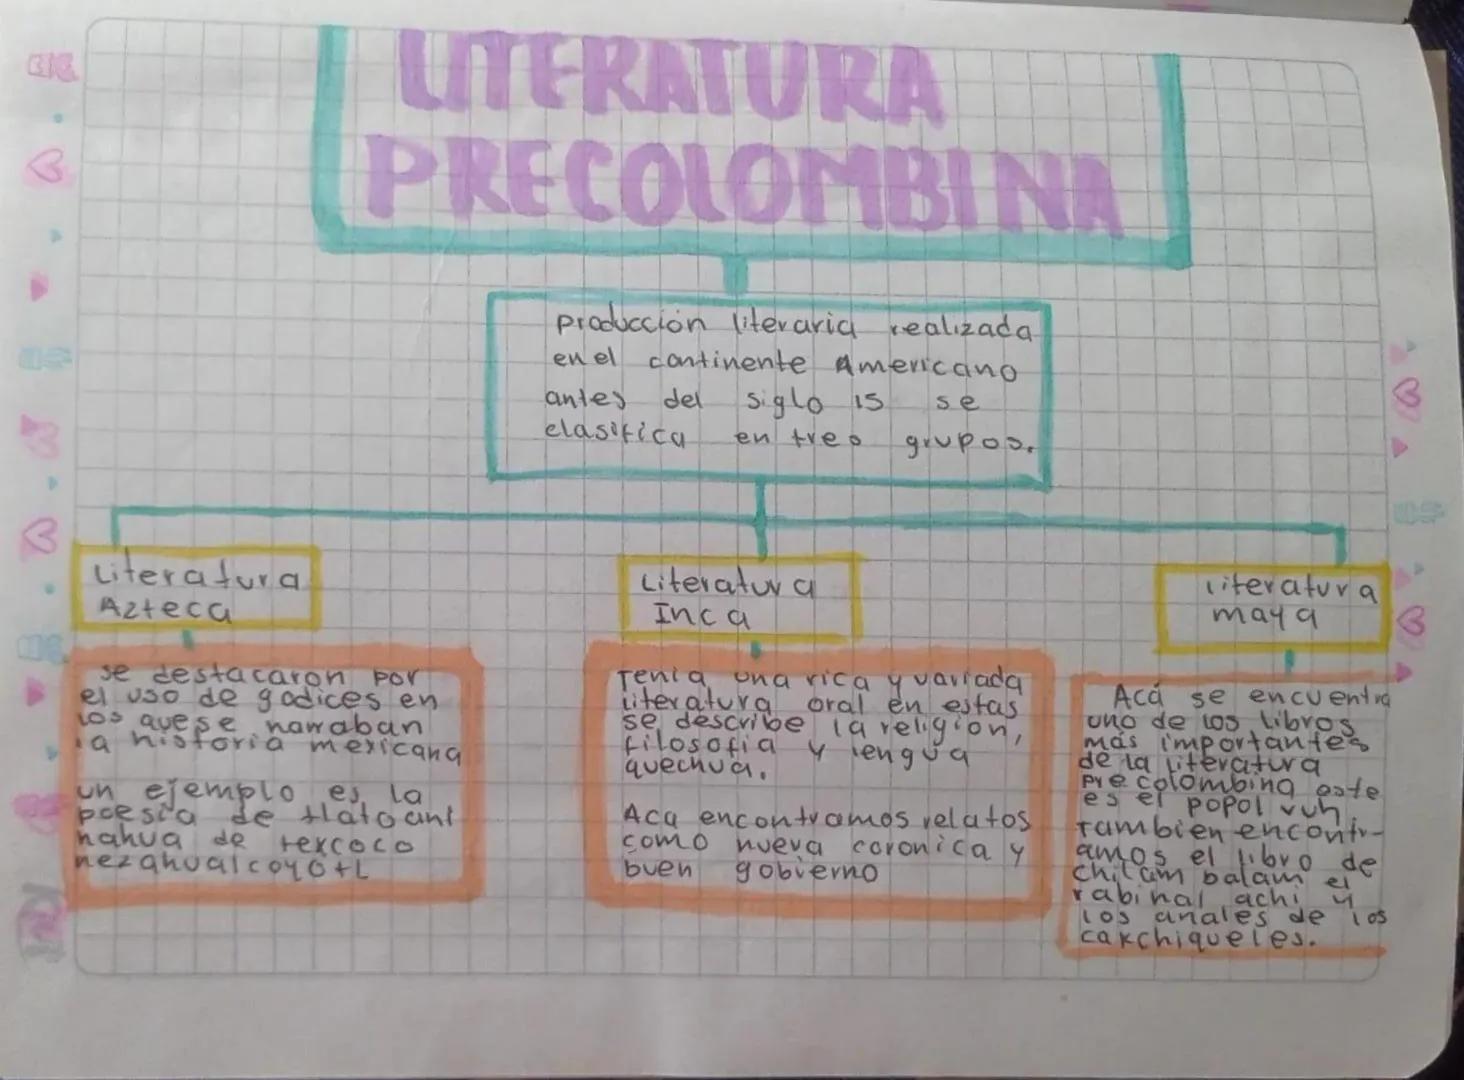 LITERATURA
PRECOLOMBINA
producción literaria realizada
en el continente Americano
antes del siglo 15 se
clasifica en tres grupos.
Literatura
Azteca
se destacaron por
el uso de godices en
los quese narraban
la historia mexicana
un ejemplo es la
poesia de tlatoani
nahua de texcoco
nezahualcoyotL
Literatura
Inca
Tenia una rica y variada
literatura oral en estas
se describe la religion,
filosofia y lengua
quechua.
Aca encontramos relatos
como nueva coronica y
buen gobierno
literatura
maya
Acá se encuentra
uno de los libros
más importantes
de la literatura
precolombina este
es el popol vuh
Tambien encontr-
amos el libro de
chilam balam el
rabinal achi y
los anales de los
cakchiqueles.